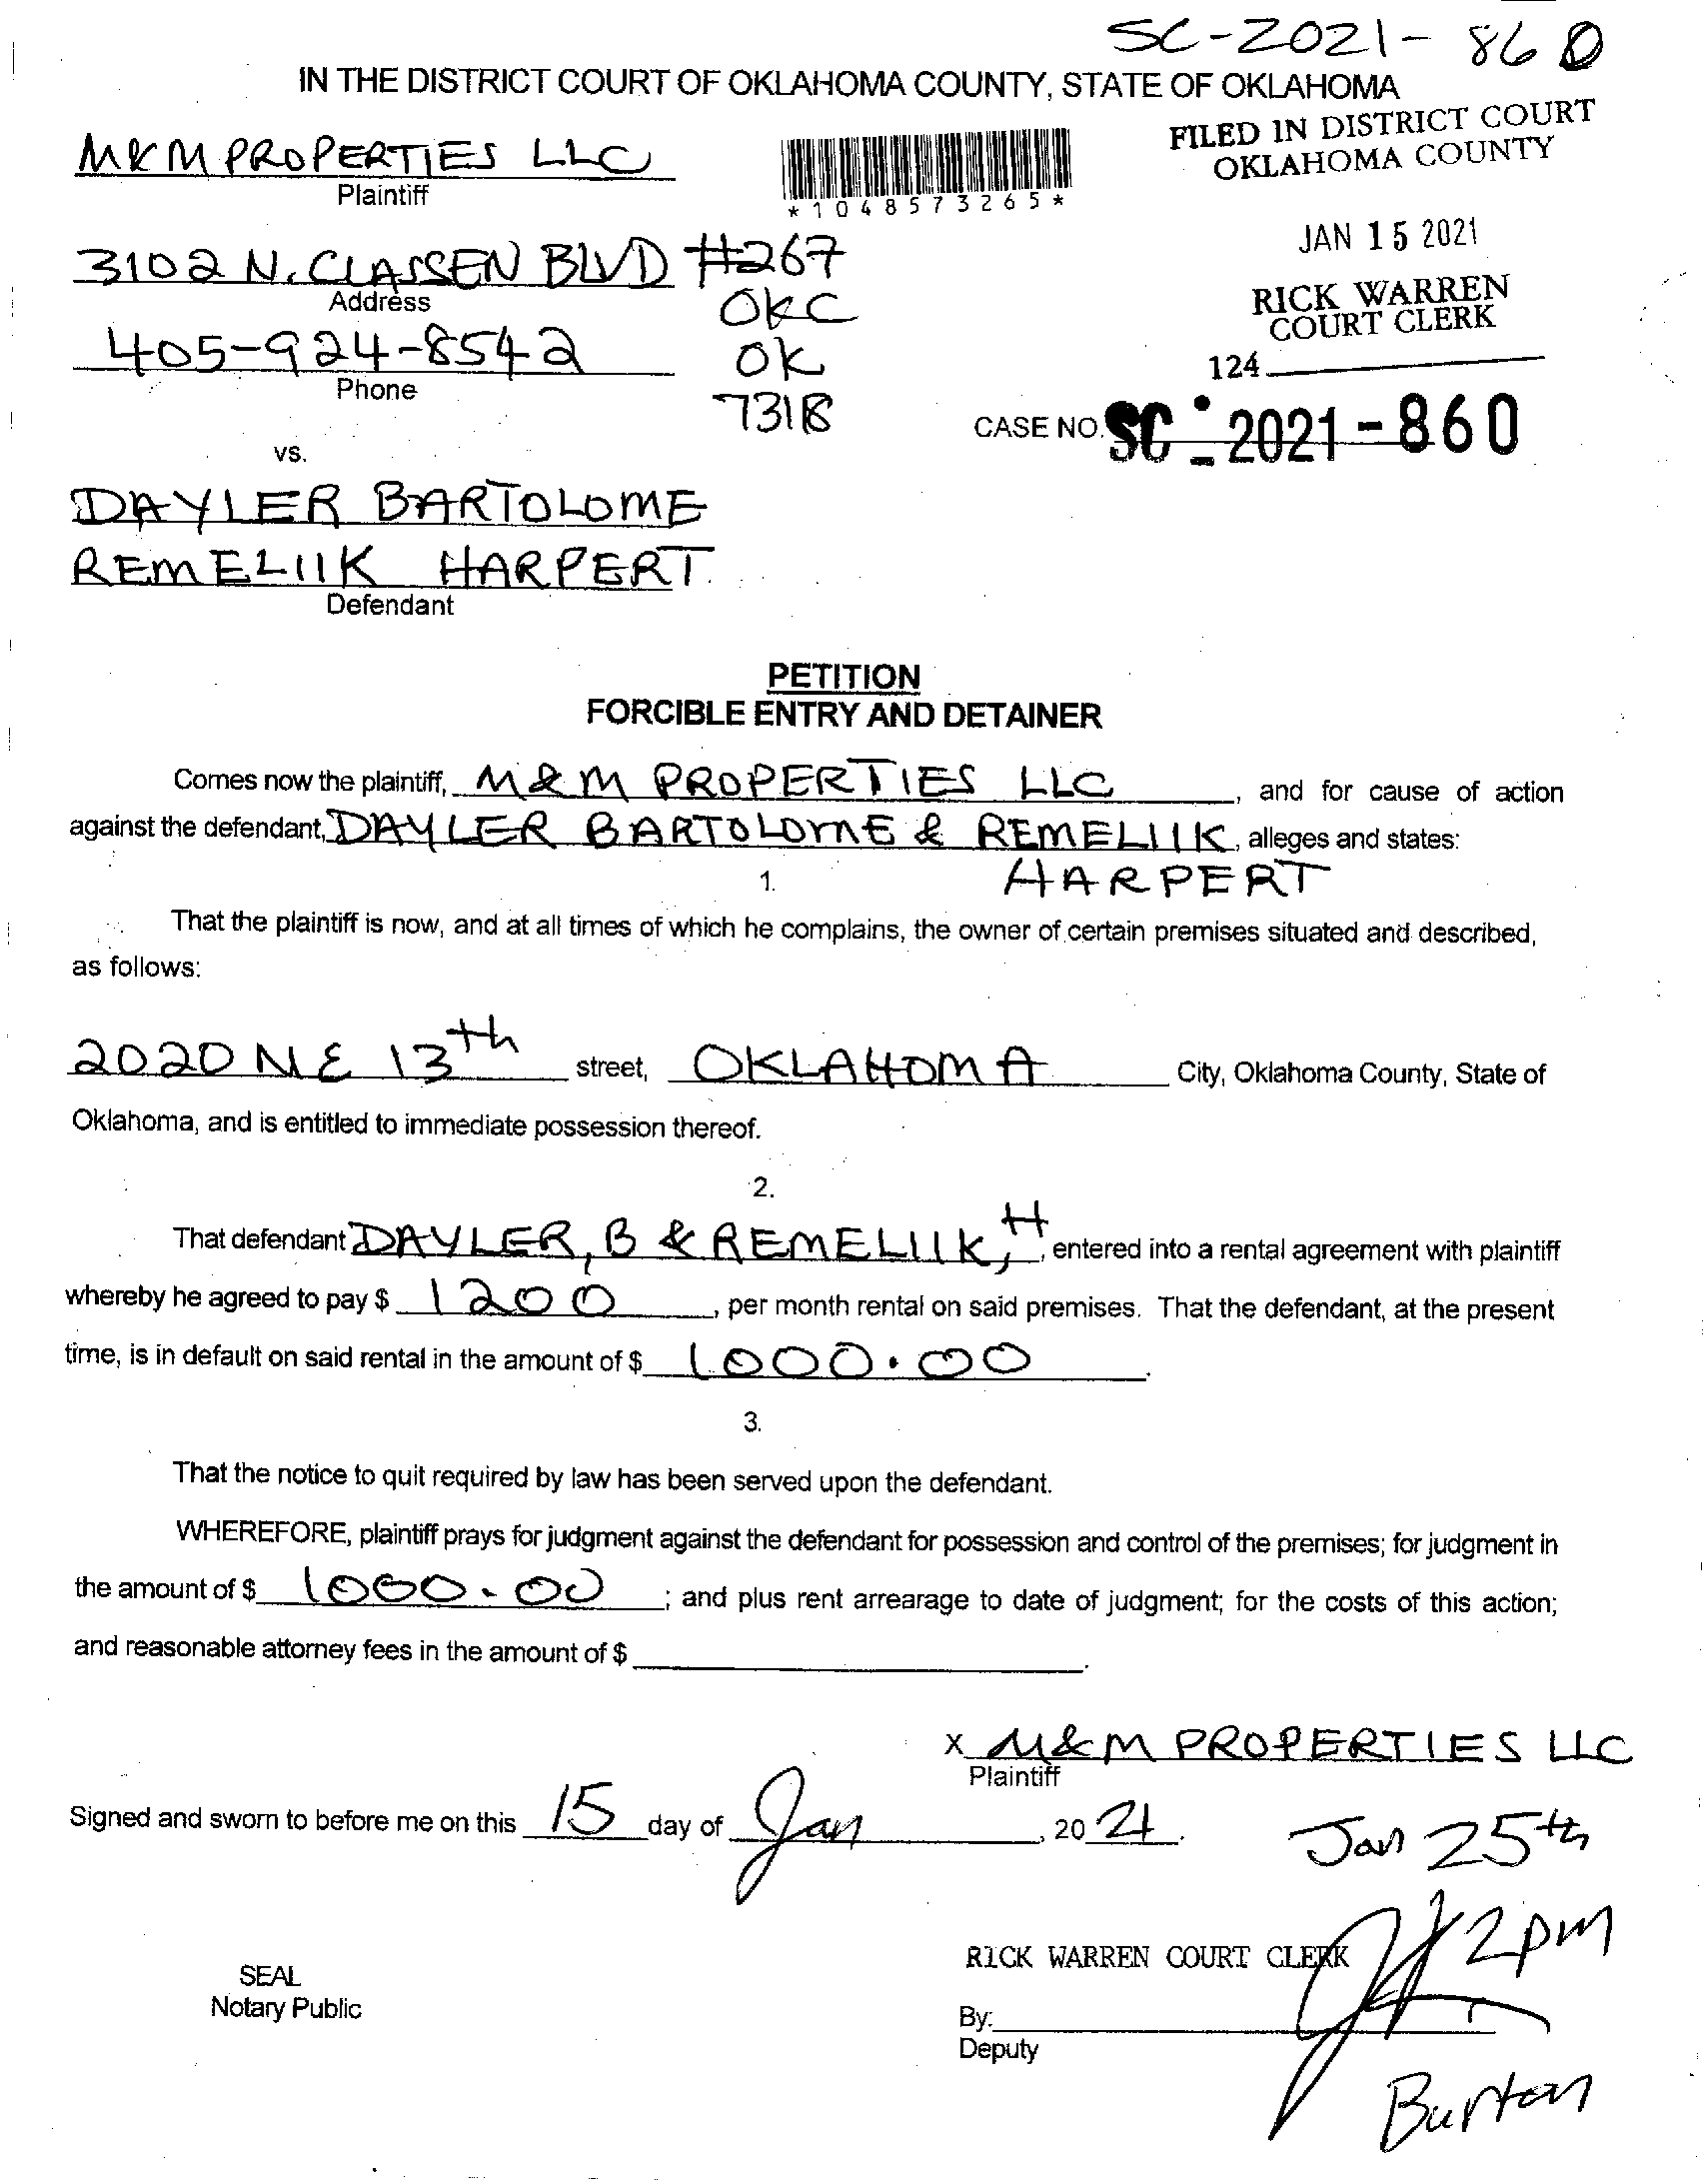 SC-2021-860
IN THE DISTRICT COURT OF OKLAHOMA COUNTY, STATE OF OKLAHOMA
FILED IN DISTRICT COURT
OKLAHOMA COUNTY
M&M PROPERTIES LLC
Plaintiff
*1048573265*
JAN 15 2021
3102 N. CLASSEN BLVD #267
Address
OKC
RICK WARREN
COURT CLERK
405-924-8542
OK
Phone
124
7318
CASE NO. SC-2021-860
vs.
DAYLER BARTOLOME
REMELIIK HARPERT.
Defendant
PETITION
FORCIBLE ENTRY AND DETAINER
Comes now the plaintiff, M&M PROPERTIES LLC, and for cause of action
against the defendant, DAYLER BARTOLOME & REMELIIK, alleges and states:
HARPERT
1.
That the plaintiff is now, and at all times of which he complains, the owner of certain premises situated and described,
as follows:
2020 NE 13th street, OKLAHOMA City, Oklahoma County, State of
Oklahoma, and is entitled to immediate possession thereof.
2.
That defendant DAYLER, B & REMELIIK, H, entered into a rental agreement with plaintiff
whereby he agreed to pay $ 1200, per month rental on said premises. That the defendant, at the present
time, is in default on said rental in the amount of $ 1000.00.
3.
That the notice to quit required by law has been served upon the defendant.
WHEREFORE, plaintiff prays for judgment against the defendant for possession and control of the premises; for judgment in
the amount of $ 1000.00; and plus rent arrearage to date of judgment; for the costs of this action;
and reasonable attorney fees in the amount of $ .
X M&M PROPERTIES LLC
Plaintiff
Signed and sworn to before me on this 15 day of Jan, 2021.
Jan 25th
2pm
RICK WARREN COURT CLERK
SEAL
Notary Public
By:
Deputy
Burton